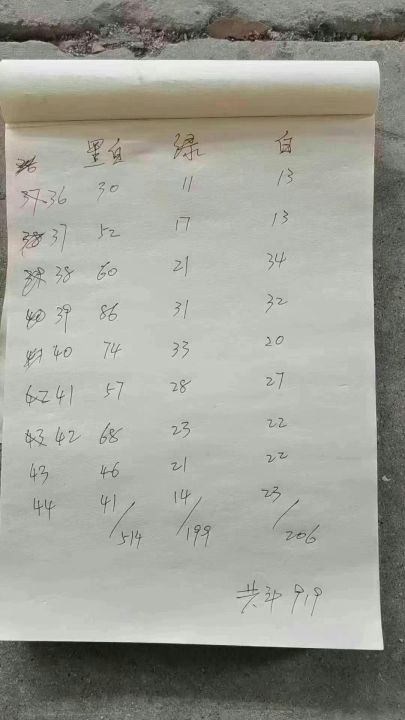 黑白 绿 白
36 30 11 13
37 52 17 13
38 60 21 34
39 86 31 32
40 74 33 20
41 57 28 27
42 68 23 22
43 46 21 22
44 41 14 23
514 199 206
共 919